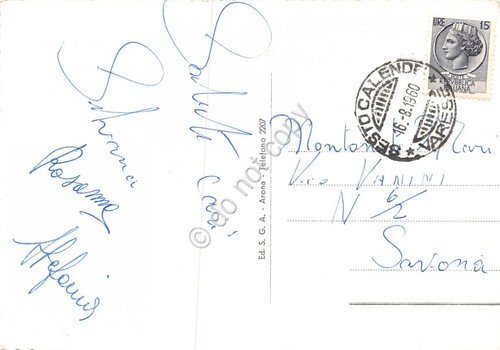 Saluti cari
Silvana
Rosanna
Stefania
Ed. S. G. A. - Arona - Telefono 2207
do not copy
LIRE 15
ITALIANA
SESTO CALENDE
16-8.1960
VARESE
Montan Mari
Via VANINI
N 6/2
Savona